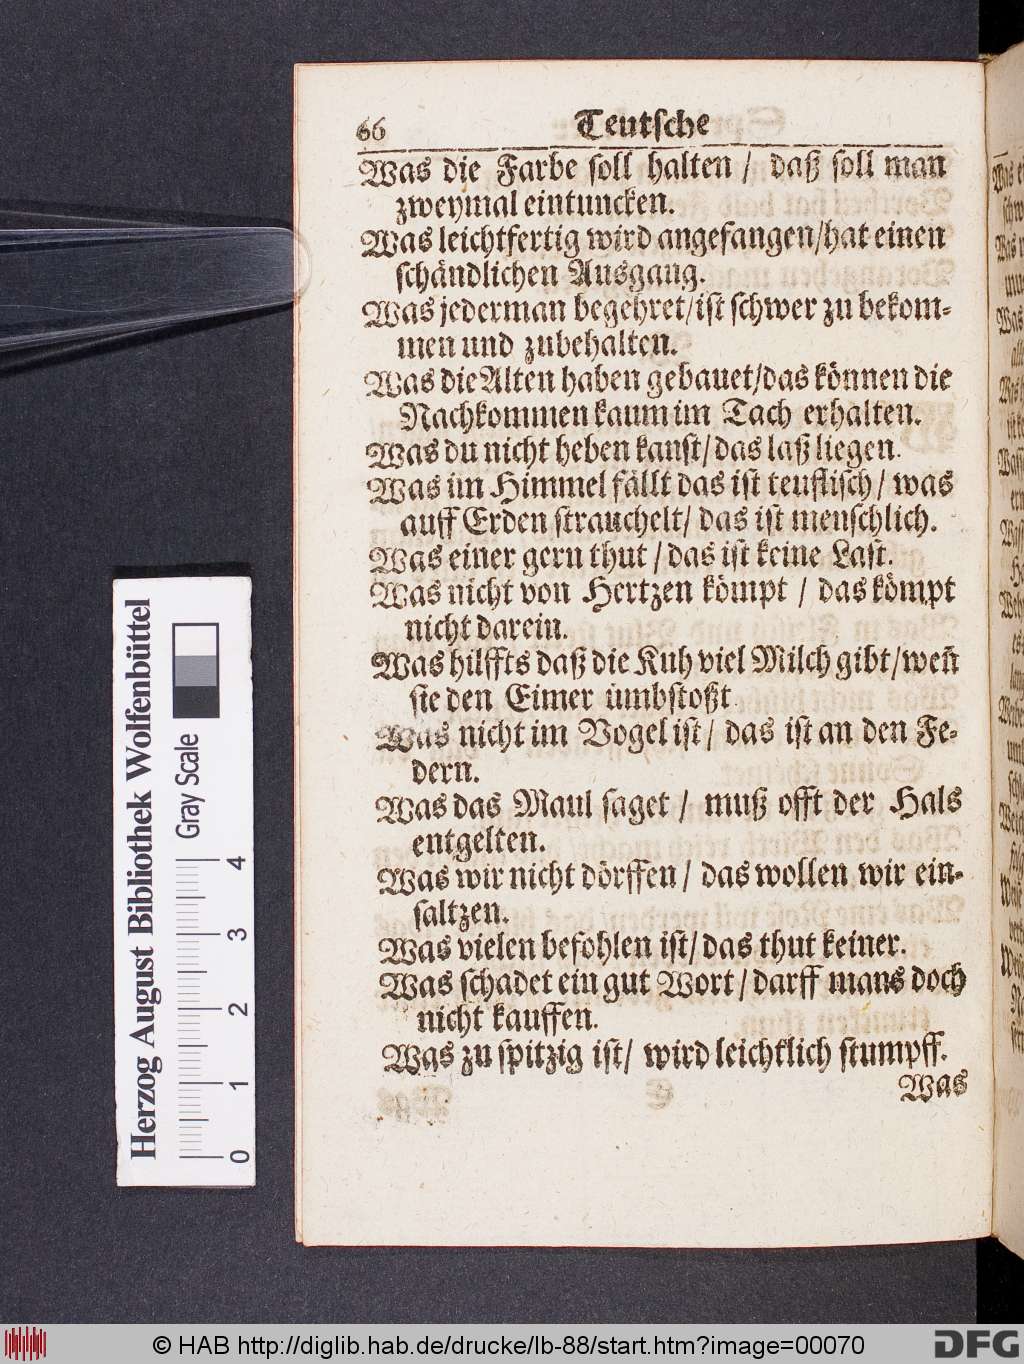 66 Teutsche
Was die Farbe soll halten / daß soll man
zweymal eintuncken.
Was leichtfertig wird angefangen/hat einen
schändlichen Ausgang.
Was jederman begehret/ist schwer zu bekom-
men und zubehalten.
Was die Alten haben gebauet/das können die
Nachkommen kaum im Tach erhalten.
Was du nicht heben kanst/das laß liegen.
Was im Himmel fällt das ist teuflisch / was
auff Erden strauchelt/ das ist menschlich.
Was einer gern thut / das ist keine Last.
Was nicht von Hertzen kömpt / das kömpt
nicht darein.
Was hilffts daß die Kuh viel Milch gibt/weñ
sie den Eimer ümbstoßt
Was nicht im Vogel ist / das ist an den Fe-
dern.
Was das Maul saget / muß offt der Hals
entgelten.
Was wir nicht dörffen / das wollen wir ein-
saltzen.
Was vielen befohlen ist/ das thut keiner.
Was schadet ein gut Wort / darff mans doch
nicht kauffen.
Was zu spitzig ist/ wird leichtlich stumpff.
Was
Herzog August Bibliothek Wolfenbüttel
Gray Scale
0 1 2 3 4
© HAB http://diglib.hab.de/drucke/lb-88/start.htm?image=00070
DFG